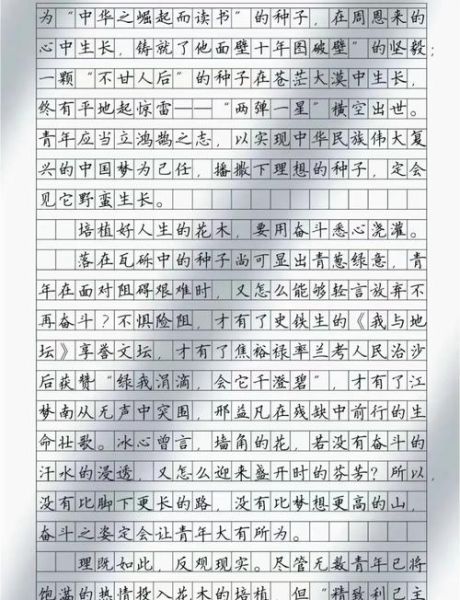 为“中华之崛起而读书”的种子，在周恩来的
心中生长，铸就了他面壁十年图破壁”的坚毅；
一颗“不甘人后”的种子在苍茫大漠中生长，
终有平地起惊雷——“两弹一星”横空出世。
青年应当立鸿鹄之志，以实现中华民族伟大复
兴的中国梦为己任，播撒下理想的种子，定会
见它野蛮生长。
培植好人生的花木，要用奋斗悉心浇灌。
落在瓦砾中的种子尚可显出青葱绿意，青
年在面对阻碍艰难时，又怎么能够轻言放弃不
再奋斗？不惧险阻，才有了史铁生的《我与地
坛》享誉文坛，才有了焦裕禄率兰考人民治沙
后获赞“绿我涓滴，会它千澄碧”，才有了江
梦南从无声中突围，邢益凡在残缺中前行的生
命壮歌。冰心曾言，墙角的花，若没有奋斗的
汗水的浸透，又怎么迎来盛开时的芬芳？所以，
没有比脚下更长的路，没有比梦想更高的山，
奋斗之姿定会让青年大有所为。
理既如此，反观现实。尽管无数青年已将
饱满的热情投入花木的培植，但“精致利己主